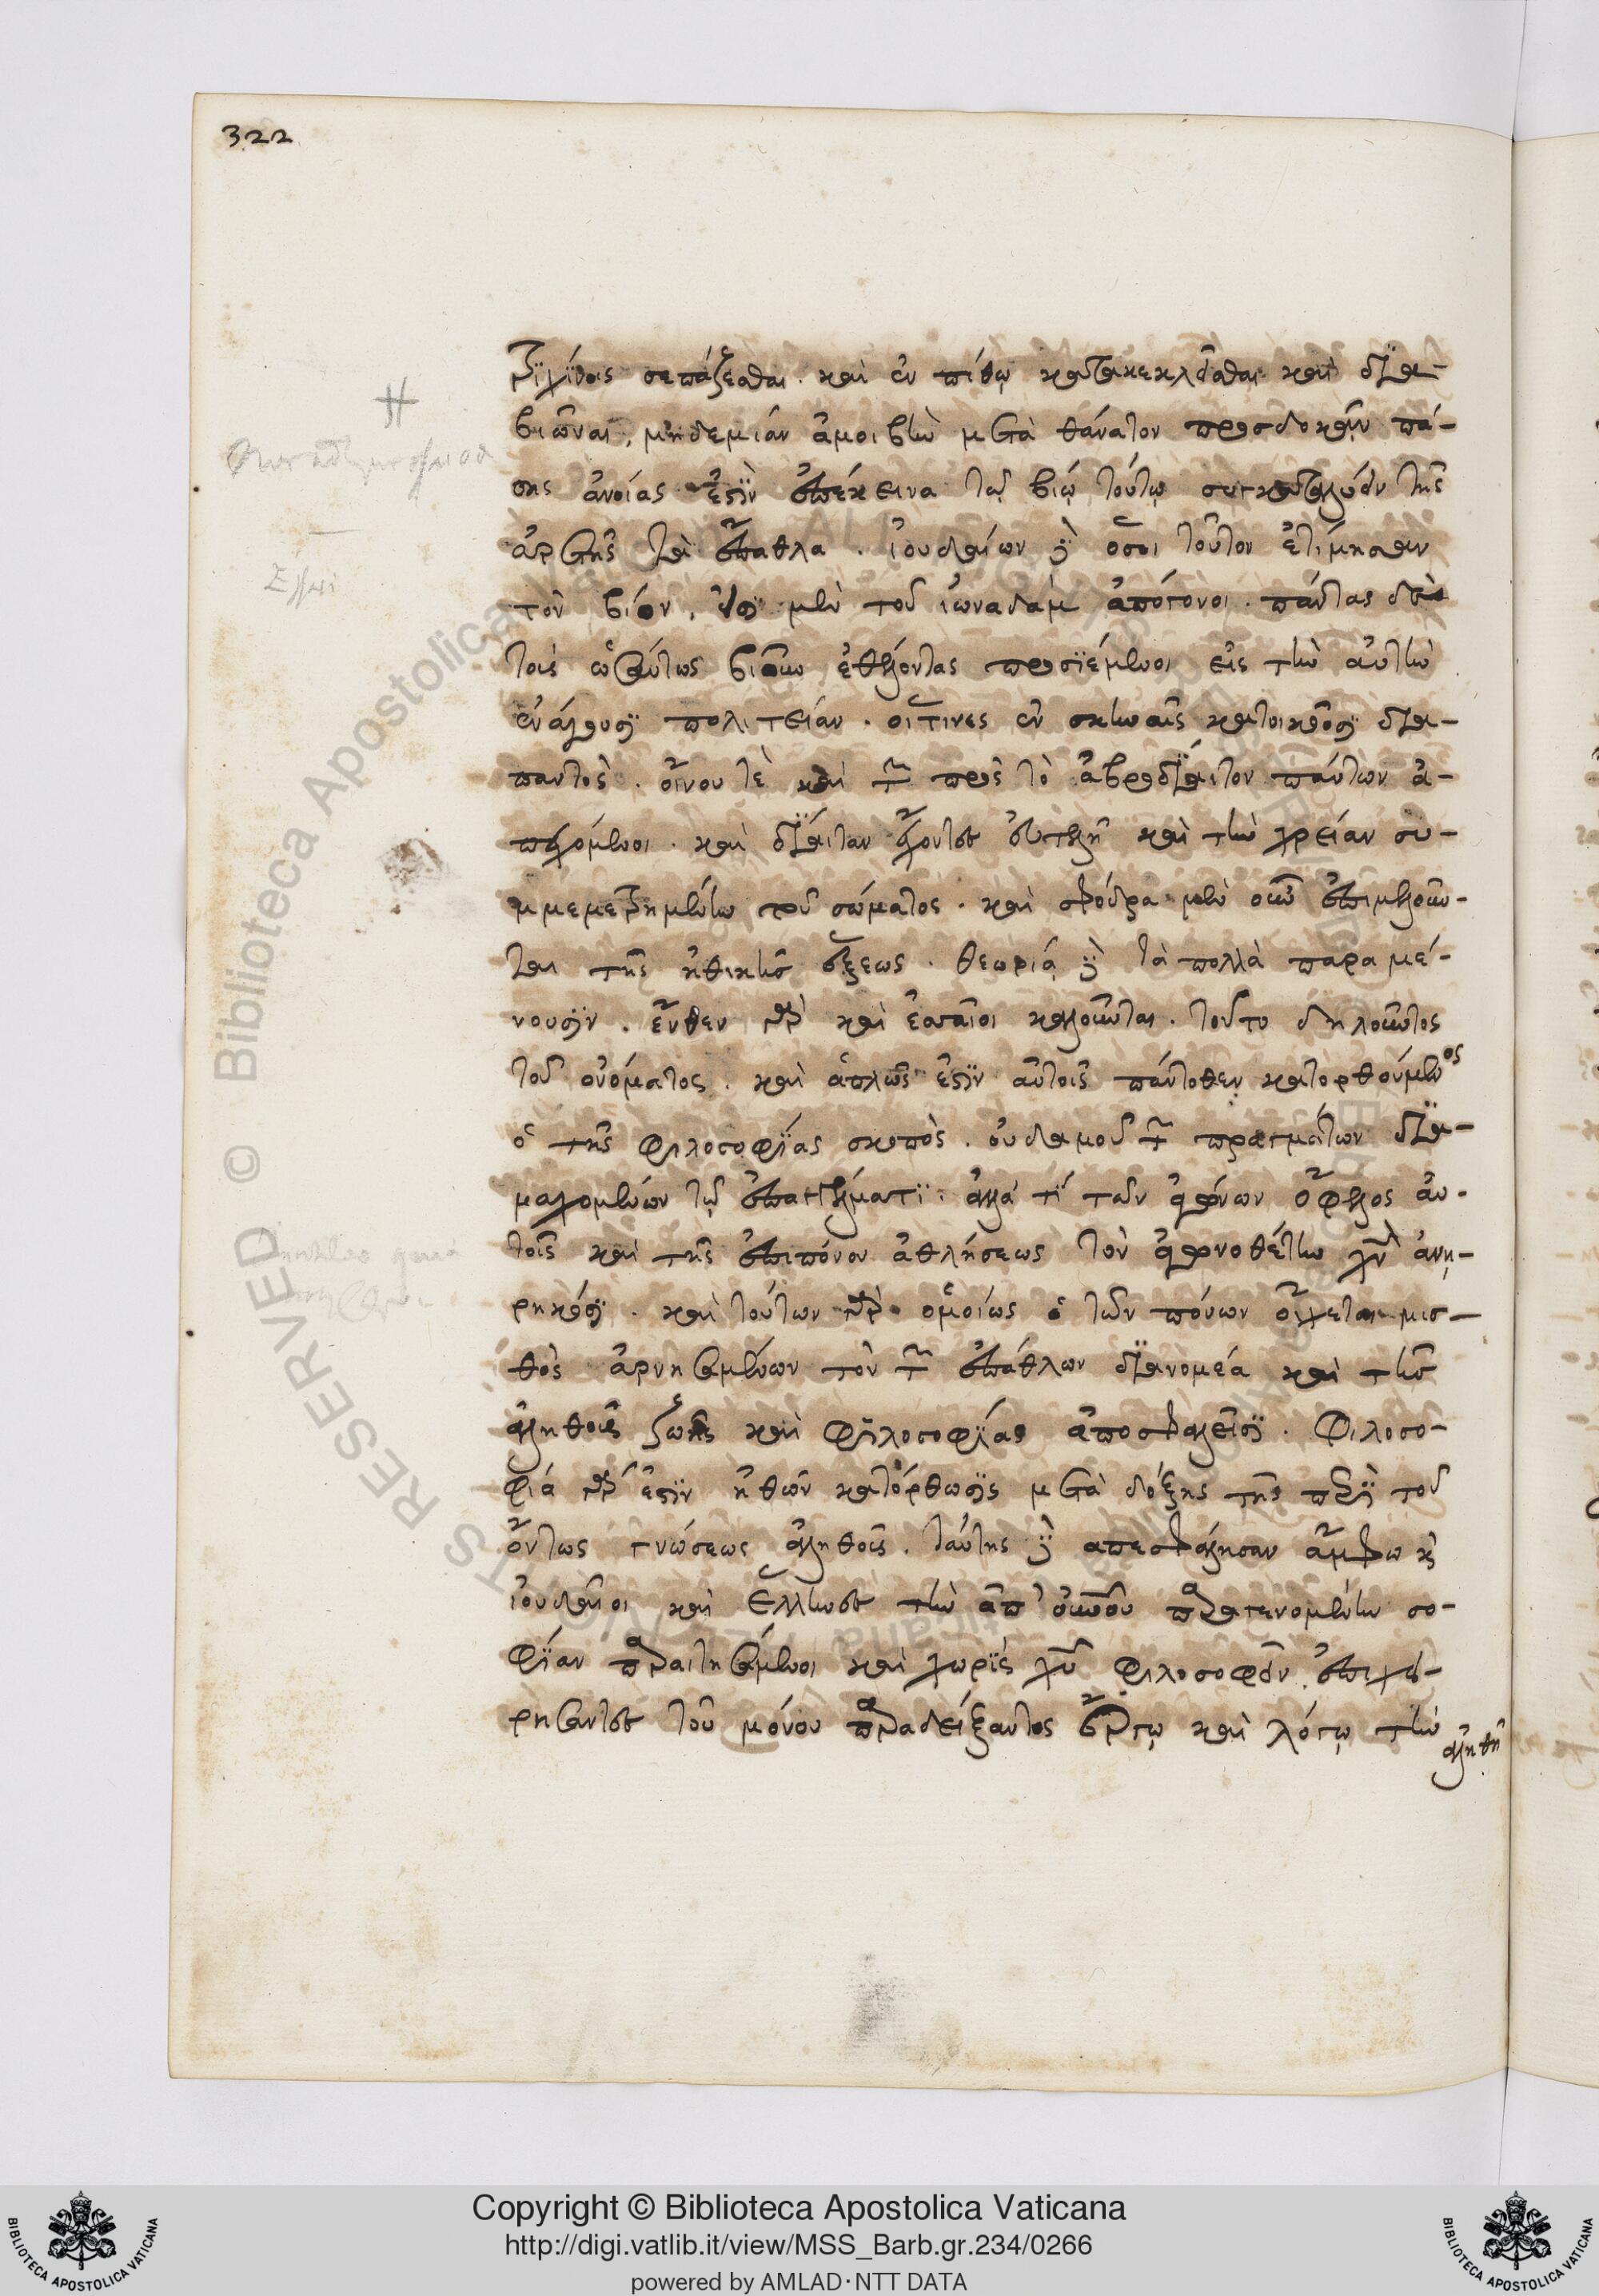 322
τριχίνοις σκεπάζεσθαι. καὶ ἐν πίθῳ κατακεκλεῖσθαι καὶ δια-
βιῶναι, μηδεμίαν ἀμοιβὴν μετὰ θάνατον προσδοκᾶν πά-
σης ἀνοίας ἐστὶν ἐπέκεινα τῷ βίῳ τούτῳ συγκαταλύειν τῆς
ἀρετῆς τὰ ἔπαθλα. ἰουδαίων δὲ ὅσοι τοῦτον ἐτίμησαν
τὸν βίον, εἰσὶ μὲν τοῦ ἰωναδὰμ ἀπόγονοι. πάντας δὲ
τοὺς ὡσαύτως βιοῦν ἐθέλοντας προσϊέμενοι εἰς τὴν αὐτὴν
ἐνάγουσι πολιτείαν. οἵτινες ἐν σκηναῖς κατοικοῦσι δια-
παντὸς. οἴνου τὲ καὶ τῶν πρὸς τὸ ἁβροδίαιτον πάντων ἀ-
πεχόμενοι. καὶ δίαιταν ἔχοντες εὐτελῆ καὶ τὴν χρείαν συ-
μμεμετρημένην τοῦ σώματος. καὶ σφόδρα μὲν οὖν ἐπιμελοῦν-
ται τῆς ἠθικῆς ἕξεως. θεωρίᾳ δὲ τὰ πολλὰ παραμέ-
νουσιν. ἔνθεν γὰρ καὶ ἐσσαῖοι καλοῦνται. τοῦτο δηλοῦντος
τοῦ ὀνόματος. καὶ ἁπλῶς ἐστὶν αὐτοῖς πάντοθεν κατορθούμενος
ὁ τῆς φιλοσοφίας σκοπὸς. οὐδαμοῦ τῶν πραγμάτων δια-
μαχομένων τῷ ἐπαγγέλματι. ἀλλά τί τῶν ἀγώνων ὄφελος αὐ-
τοῖς καὶ τῆς ἐπιπόνου ἀθλήσεως τὸν ἀγωνοθέτην χν ἀνῃ-
ρηκόσι. καὶ τούτων γὰρ ὁμοίως ὁ τῶν πόνων οἴχεται μισ-
θὸς ἀρνησαμένων τὸν τῶν ἐπάθλων διανομέα καὶ τῆς
ἀληθοῦς ζωῆς καὶ φιλοσοφίας ἀποσφαλεῖσι. φιλοσο-
φία γάρ ἐστιν ἠθῶν κατόρθωσις μετὰ δόξης τῆς περὶ τοῦ
ὄντως γνώσεως ἀληθοῦς. ταύτης δὲ απεσφάλησαν ἄμφω κ
ἰουδαῖοι καὶ ἕλληνες τὴν ἀπ' οὐνοῦ παραγενομένην σο-
φίαν παραιτησάμενοι καὶ χωρὶς χυ φιλοσοφεῖν ἐπιχει-
ρήσαντες τοῦ μόνου παραδείξαντος ἔργῳ καὶ λόγῳ τὴν
ἀληθῆ
Copyright © Biblioteca Apostolica Vaticana
http://digi.vatlib.it/view/MSS_Barb.gr.234/0266
powered by AMLAD·NTT DATA